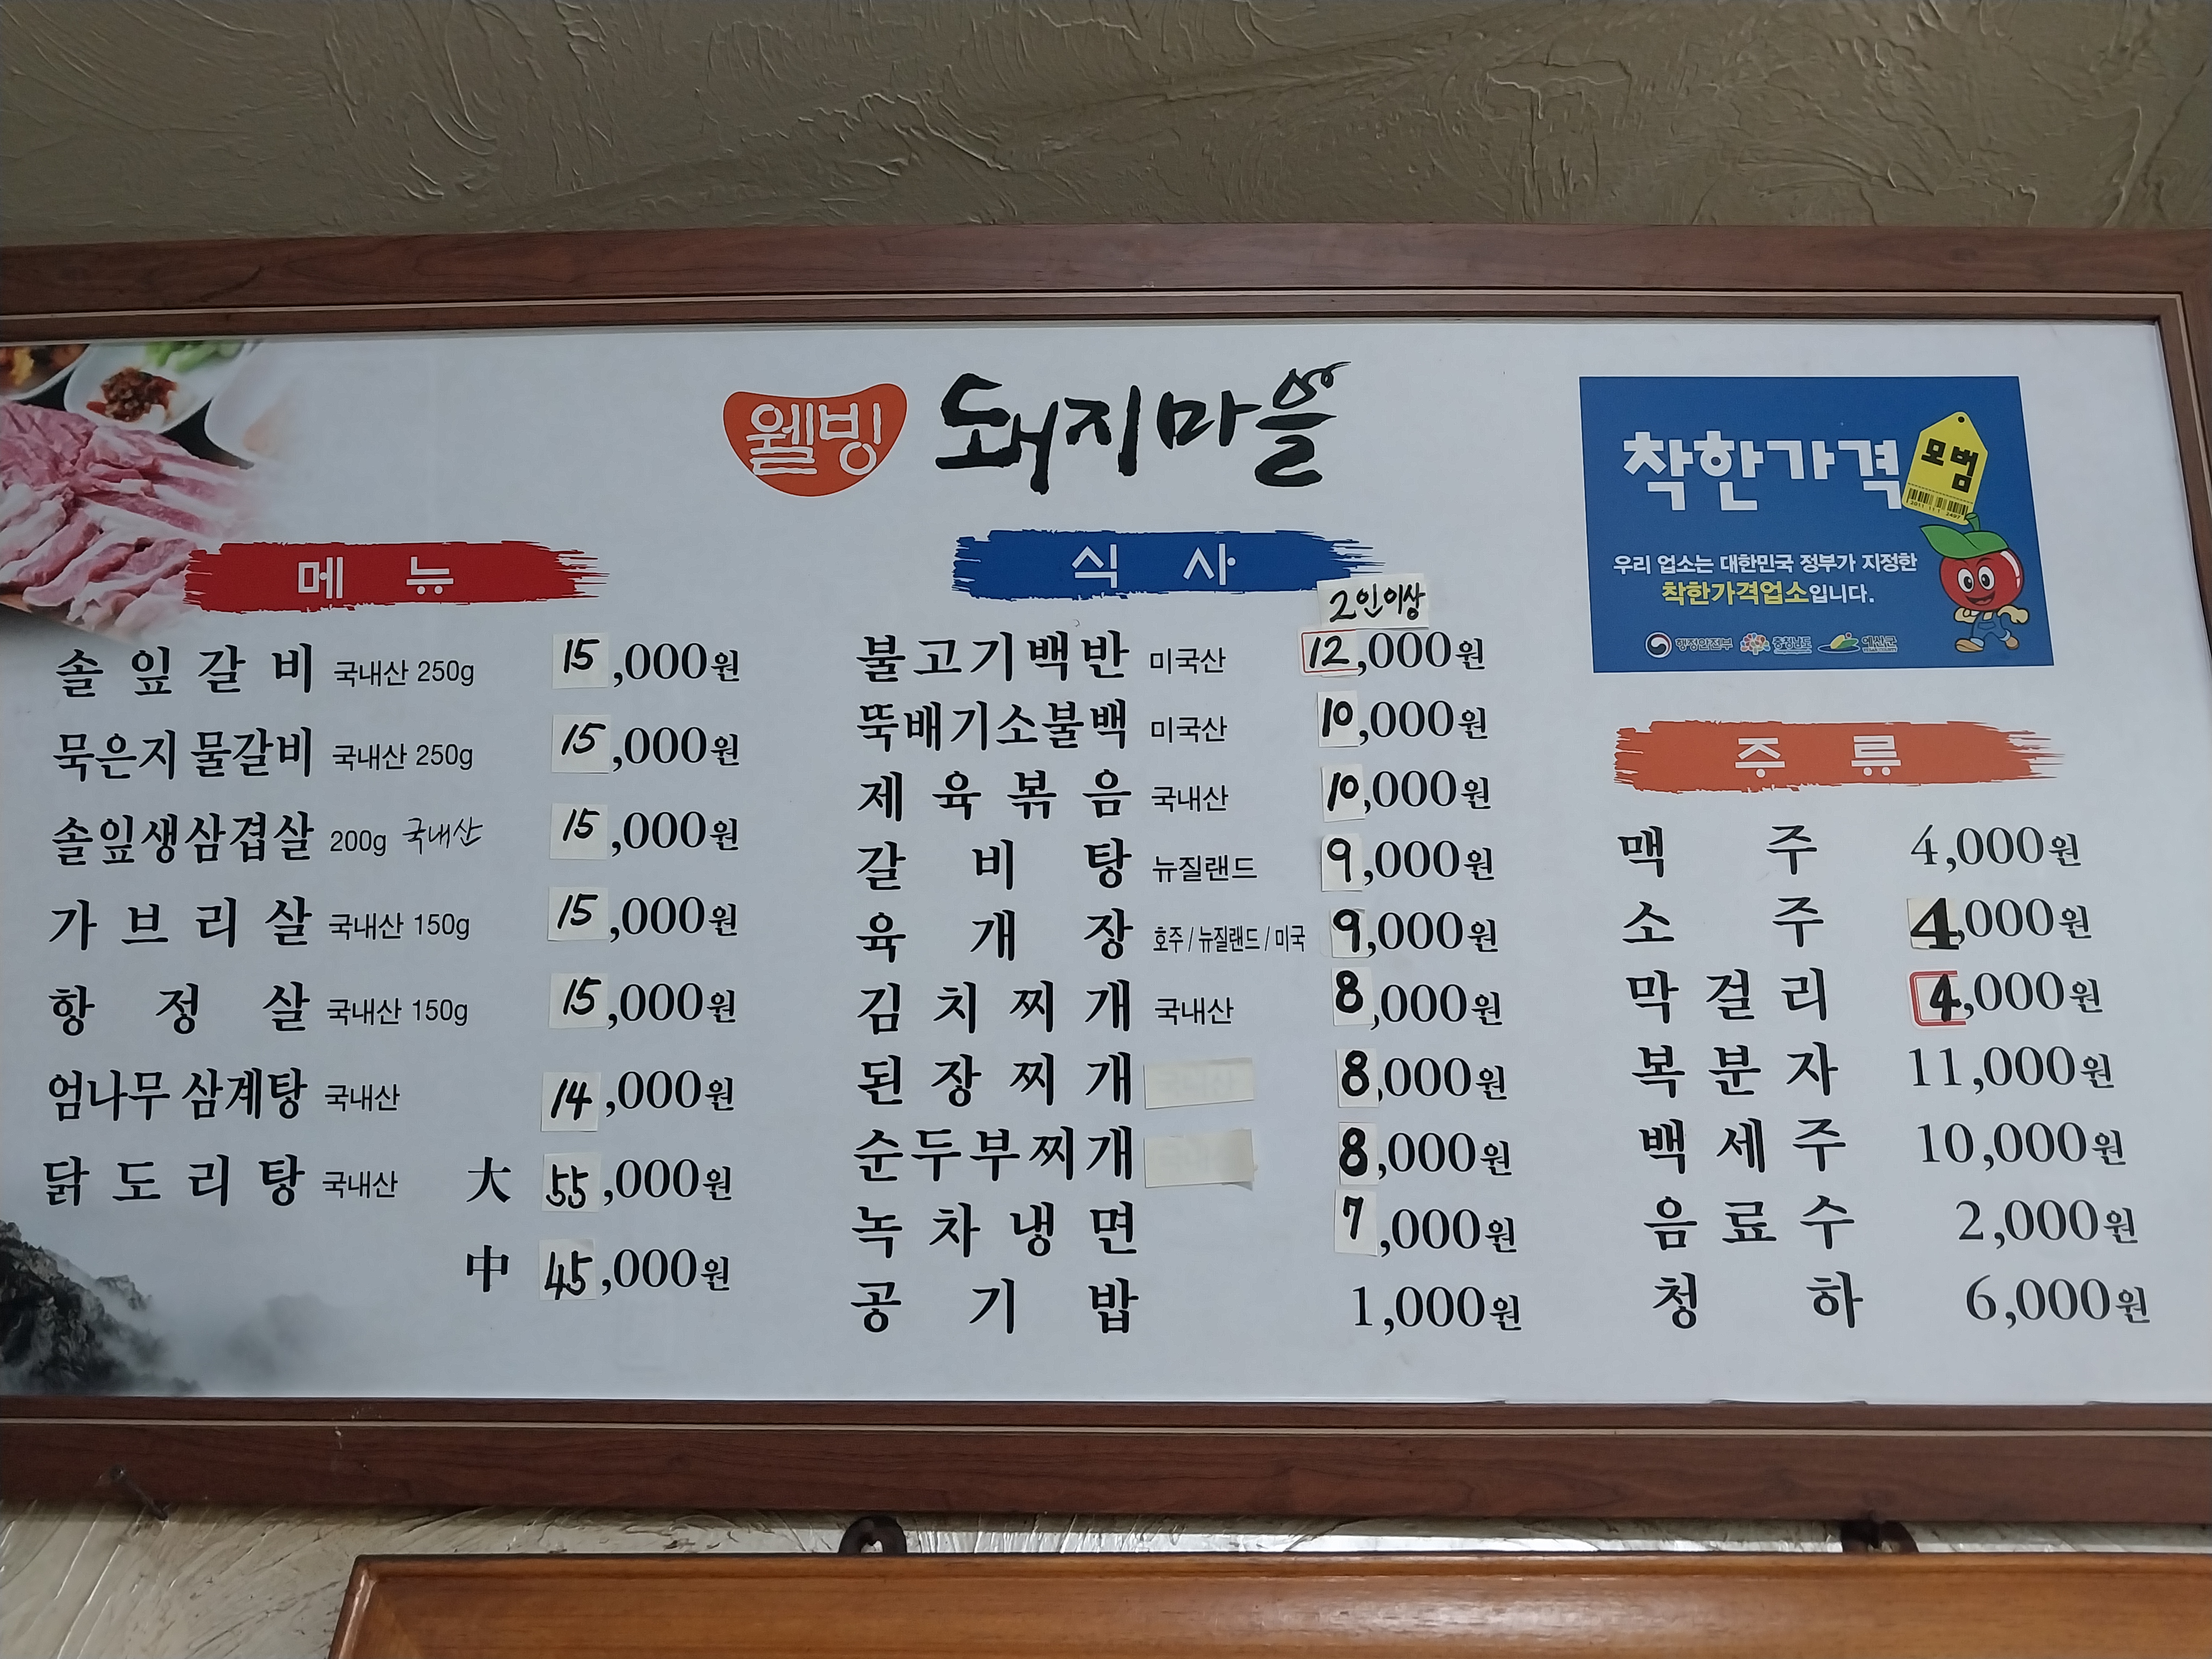 웰빙 돼지마을
메뉴
솔잎갈비 국내산 250g 15,000원
묵은지 물갈비 국내산 250g 15,000원
솔잎생삼겹살 200g 국내산 15,000원
가브리살 국내산 150g 15,000원
항정살 국내산 150g 15,000원
엄나무 삼계탕 국내산 14,000원
닭도리탕 국내산 大 55,000원
中 45,000원
식사
2인이상
불고기백반 미국산 12,000원
뚝배기소불백 미국산 10,000원
제육볶음 국내산 10,000원
갈비탕 뉴질랜드 9,000원
육개장 호주/뉴질랜드/미국 9,000원
김치찌개 국내산 8,000원
된장찌개 8,000원
순두부찌개 8,000원
녹차냉면 7,000원
공기밥 1,000원
착한가격 모범
우리 업소는 대한민국 정부가 지정한
착한가격업소입니다.
행정안전부 충청남도 예산군
주류
맥주 4,000원
소주 4,000원
막걸리 4,000원
복분자 11,000원
백세주 10,000원
음료수 2,000원
청하 6,000원